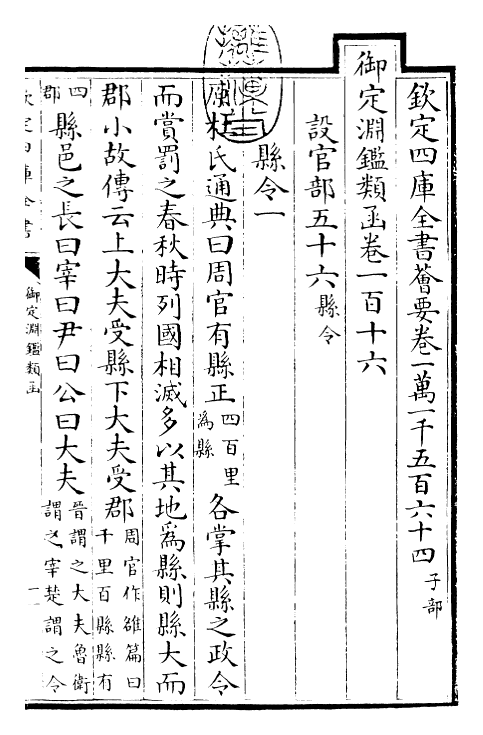 欽定四庫全書薈要卷一萬一千五百六十四 子部
御定淵鑑類函卷一百十六
設官部五十六縣令
縣令一
原杜氏通典曰周官有縣正四百里爲縣各掌其縣之政令
而賞罰之春秋時列國相滅多以其地爲縣則縣大而
郡小故傳云上大夫受縣下大夫受郡周官作雒篇曰千里百縣縣有
四郡縣邑之長曰宰曰尹曰公曰大夫晉謂之大夫魯衛謂之宰楚謂之令
欽定四庫全書
御定淵鑑類函
一